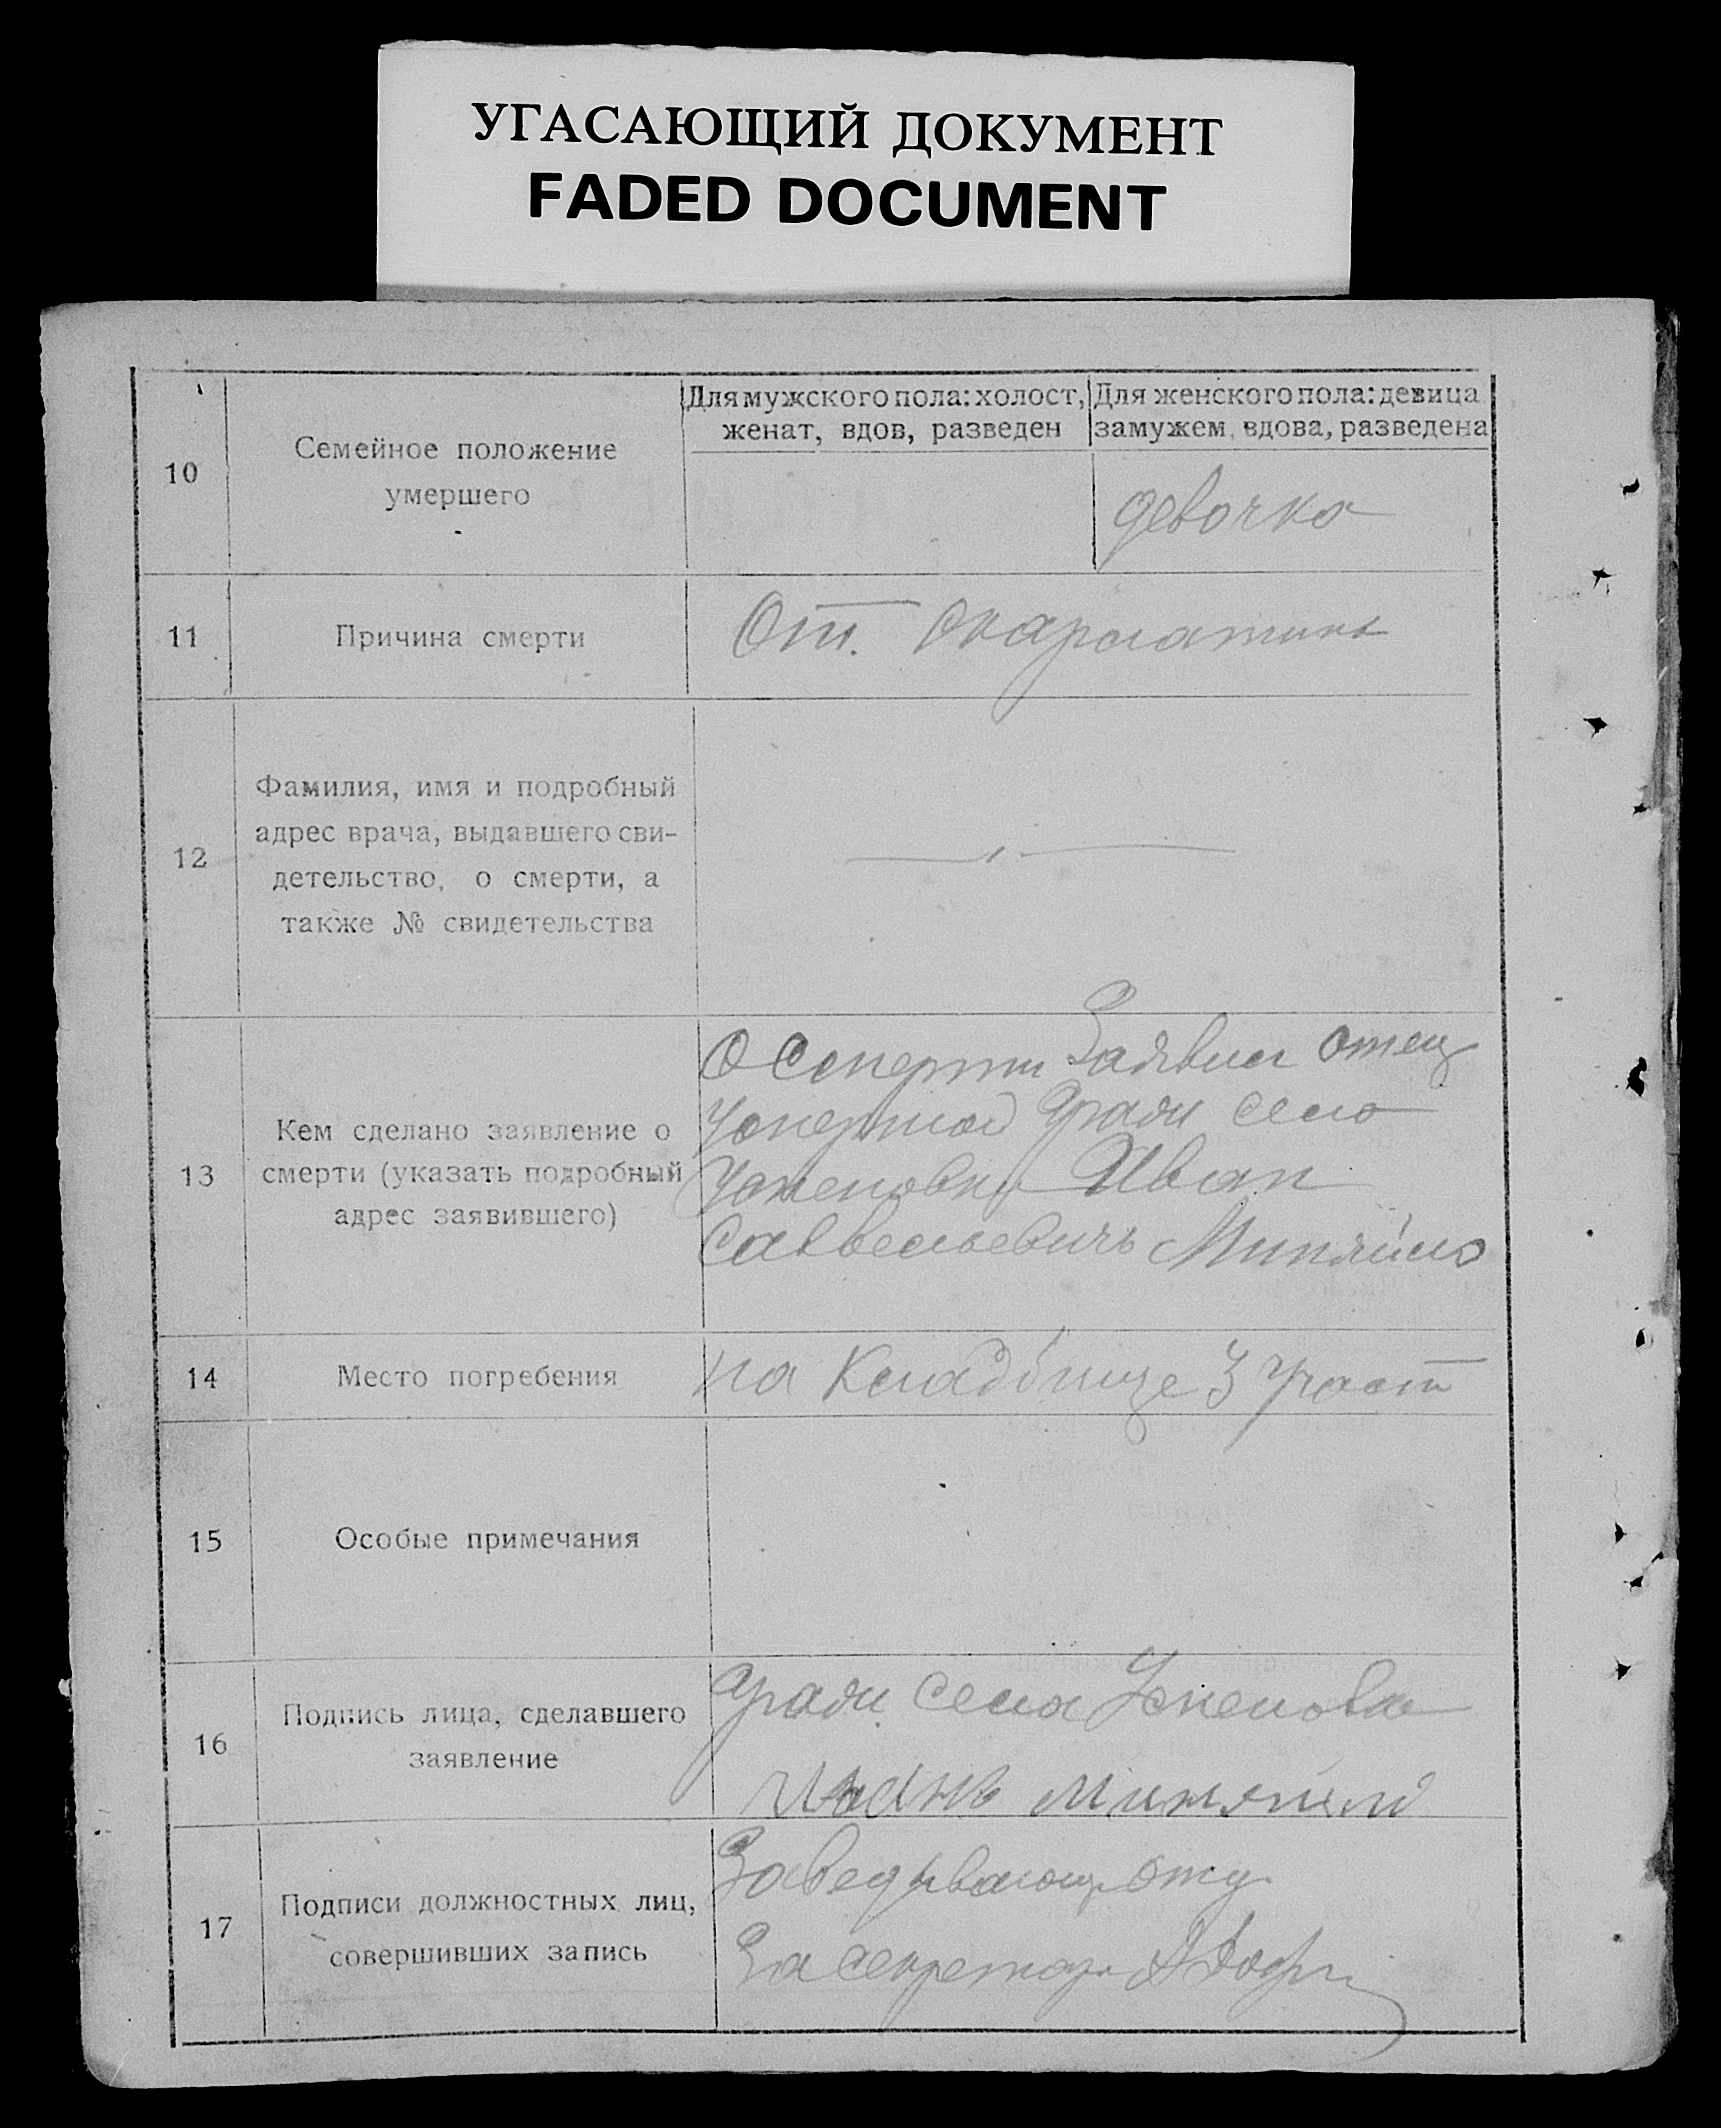 УГАСАЮЩИЙ ДОКУМЕНТ
FADED DOCUMENT
10
Семейное положение
умершего
Для мужского пола: холост,
женат, вдов, разведен
Для женского пола: девица
замужем, вдова, разведена
девочка
11
Причина смерти
От. скарлатины
12
Фамилия, имя и подробный
адрес врача, выдавшего сви-
детельство, о смерти, а
также № свидетельства
13
Кем сделано заявление о
смерти (указать подробный
адрес заявившего)
О Смерти Заявил отец
Умершой граж село
Иван
Савельевичь Миняйло
14
Место погребения
на Кладбище 3 Участ
15
Особые примечания
16
Подпись лица, сделавшего
заявление
граж. села
Иванъ Миняйло
17
Подписи должностных лиц,
совершивших запись
Заведывающ отд.
За секретар